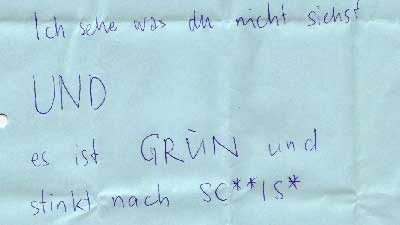 Ich sehe was du nicht siehst
UND
es ist GRÜN und
stinkt nach SC**IS*